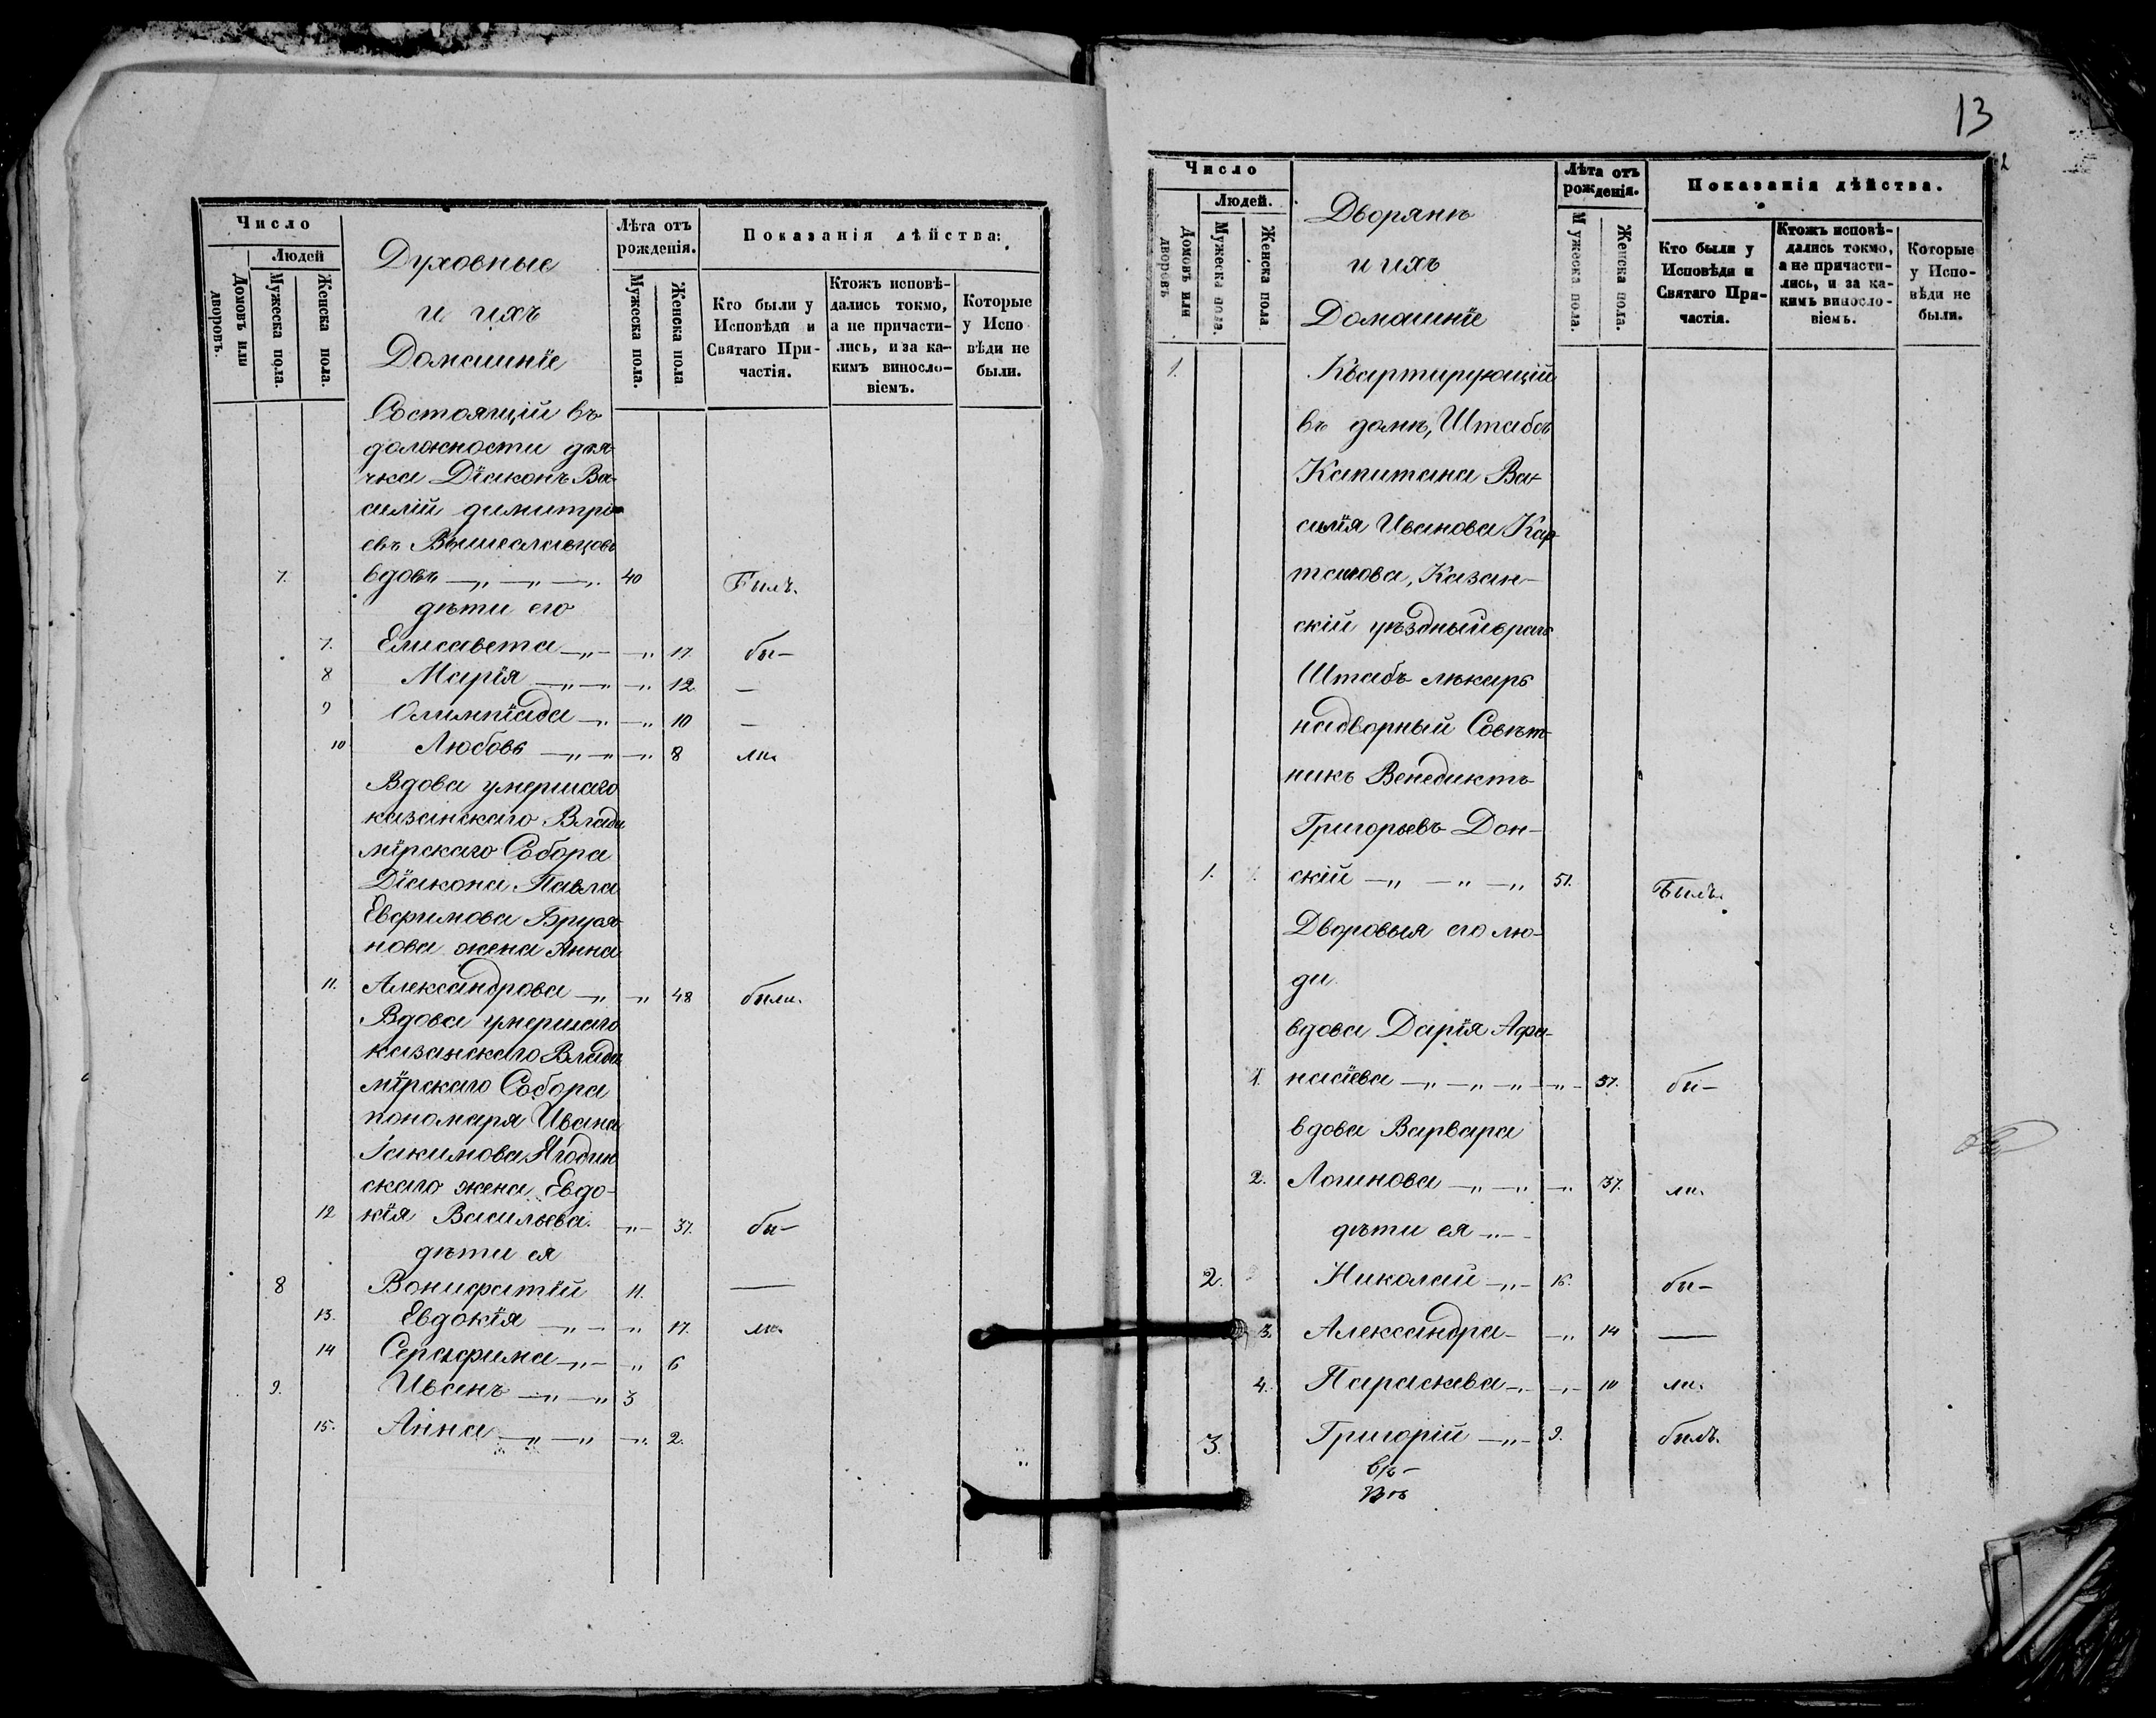 Число
Людей
Домовъ или дворовъ.
Мужеска пола.
Женска пола.
Духовные
и ихъ
Домашнiе
Лѣта отъ рожденiя.
Мужеска пола.
Женска пола
Показанiя дѣйства:
Кто были у Исповѣди и Святаго При-частiя.
Ктожъ исповѣ-дались токмо, а не причасти-лись, и за ка-кимъ виносло-вiемъ.
Которые у Испо вѣди не были.
Состоящiй въ
должности дья-
чка Дiаконъ Ва-
силiй димитрi-
евъ Вышеславцовъ
7. вдовъ —„ —„ —„ 40 Былъ.
дѣти его
7. Елисавета —„— —„ 17. бы—
8 Марiя —„—„ —„ 12 —
9 Олимпiада —„ —„ 10 —
10 Любовь —„—„ —„ 8 ли.
Вдова умершаго
казанскаго Влади
мiрскаго Собора
Дiакона Павла
Евфимова Бруся-
нова жена Анна
11. Александрова —„ —„ 48 были.
Вдова умершаго
казанскаго Влади
мiрскаго Собора
пономаря Ивана
Iакимова Ягодин
скаго жена Евдо-
12 кiя Васильева. —„— 37. бы—
дѣти ея
8 Вонифатiй 11. —
13. Евдокiя —„— „ 17. ли.
14 Серафима —„— „ 6
9. Иванъ —„—„ 3
15. Анна —„—„ —„ 2.
13
2
Число
Людей.
Домовъ или дворовъ
Мужеска пола.
Женска пола
Дворяне
и ихъ
Домашнiе
Лѣта отъ рожденiя.
Мужеска пола.
Женска пола.
Показанiя дѣйства.
Кто были у Исповѣди и Святаго При-частiя.
Ктожъ исповѣ-дались токмо, а не причасти-лись, и за ка-кимъ виносло-вiемъ.
Которые у Испо-вѣди не были.
1. Квартирующiй
въ домѣ, Штабсъ
Капитана Ва-
силiя Иванова Кар
ташова, Казан-
скiй уѣздный врачъ
Штабъ лѣкарь
надворный Совѣт-
никъ Венедиктъ
Григорьевъ Дон-
1. скiй —„ —„ —„ 51. Былъ.
Дворовыя его лю-
ди
вдова Дарiя Афа-
1. насiева —„—„—„ —„— 57. бы—
вдова Варвара
2. Логинова —„—„ —„ 37. ли.
дѣти ея —„—
2. Николай —„— 16. бы—
3. Александра— —„ 14 —
4. Параскева —„ —„— 10 ли.
3. Григорiй —„— 9. былъ.